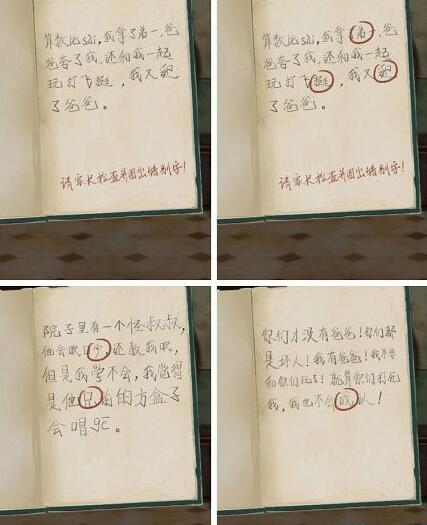 算数比sai,我拿了弟一.爸
爸夸了我.还和我一起
玩打飞挺,我
了爸爸。
请家长检查并圈出错别字!
算数比sai,我拿了弟一.爸
爸夸了我.还和我一起
玩打飞挺,我
了爸爸。
请家长检查并圈出错别字!
院子里有一个怪叔叔,
他会吹口今,还教我吹,
但是我学不会,我觉得
是他兄前的方盒子
会唱gē。
你们才没有爸爸!你们都
是坏人!我有爸爸!我不要
和你们玩了!就算你们打死
我,我也不会成认!